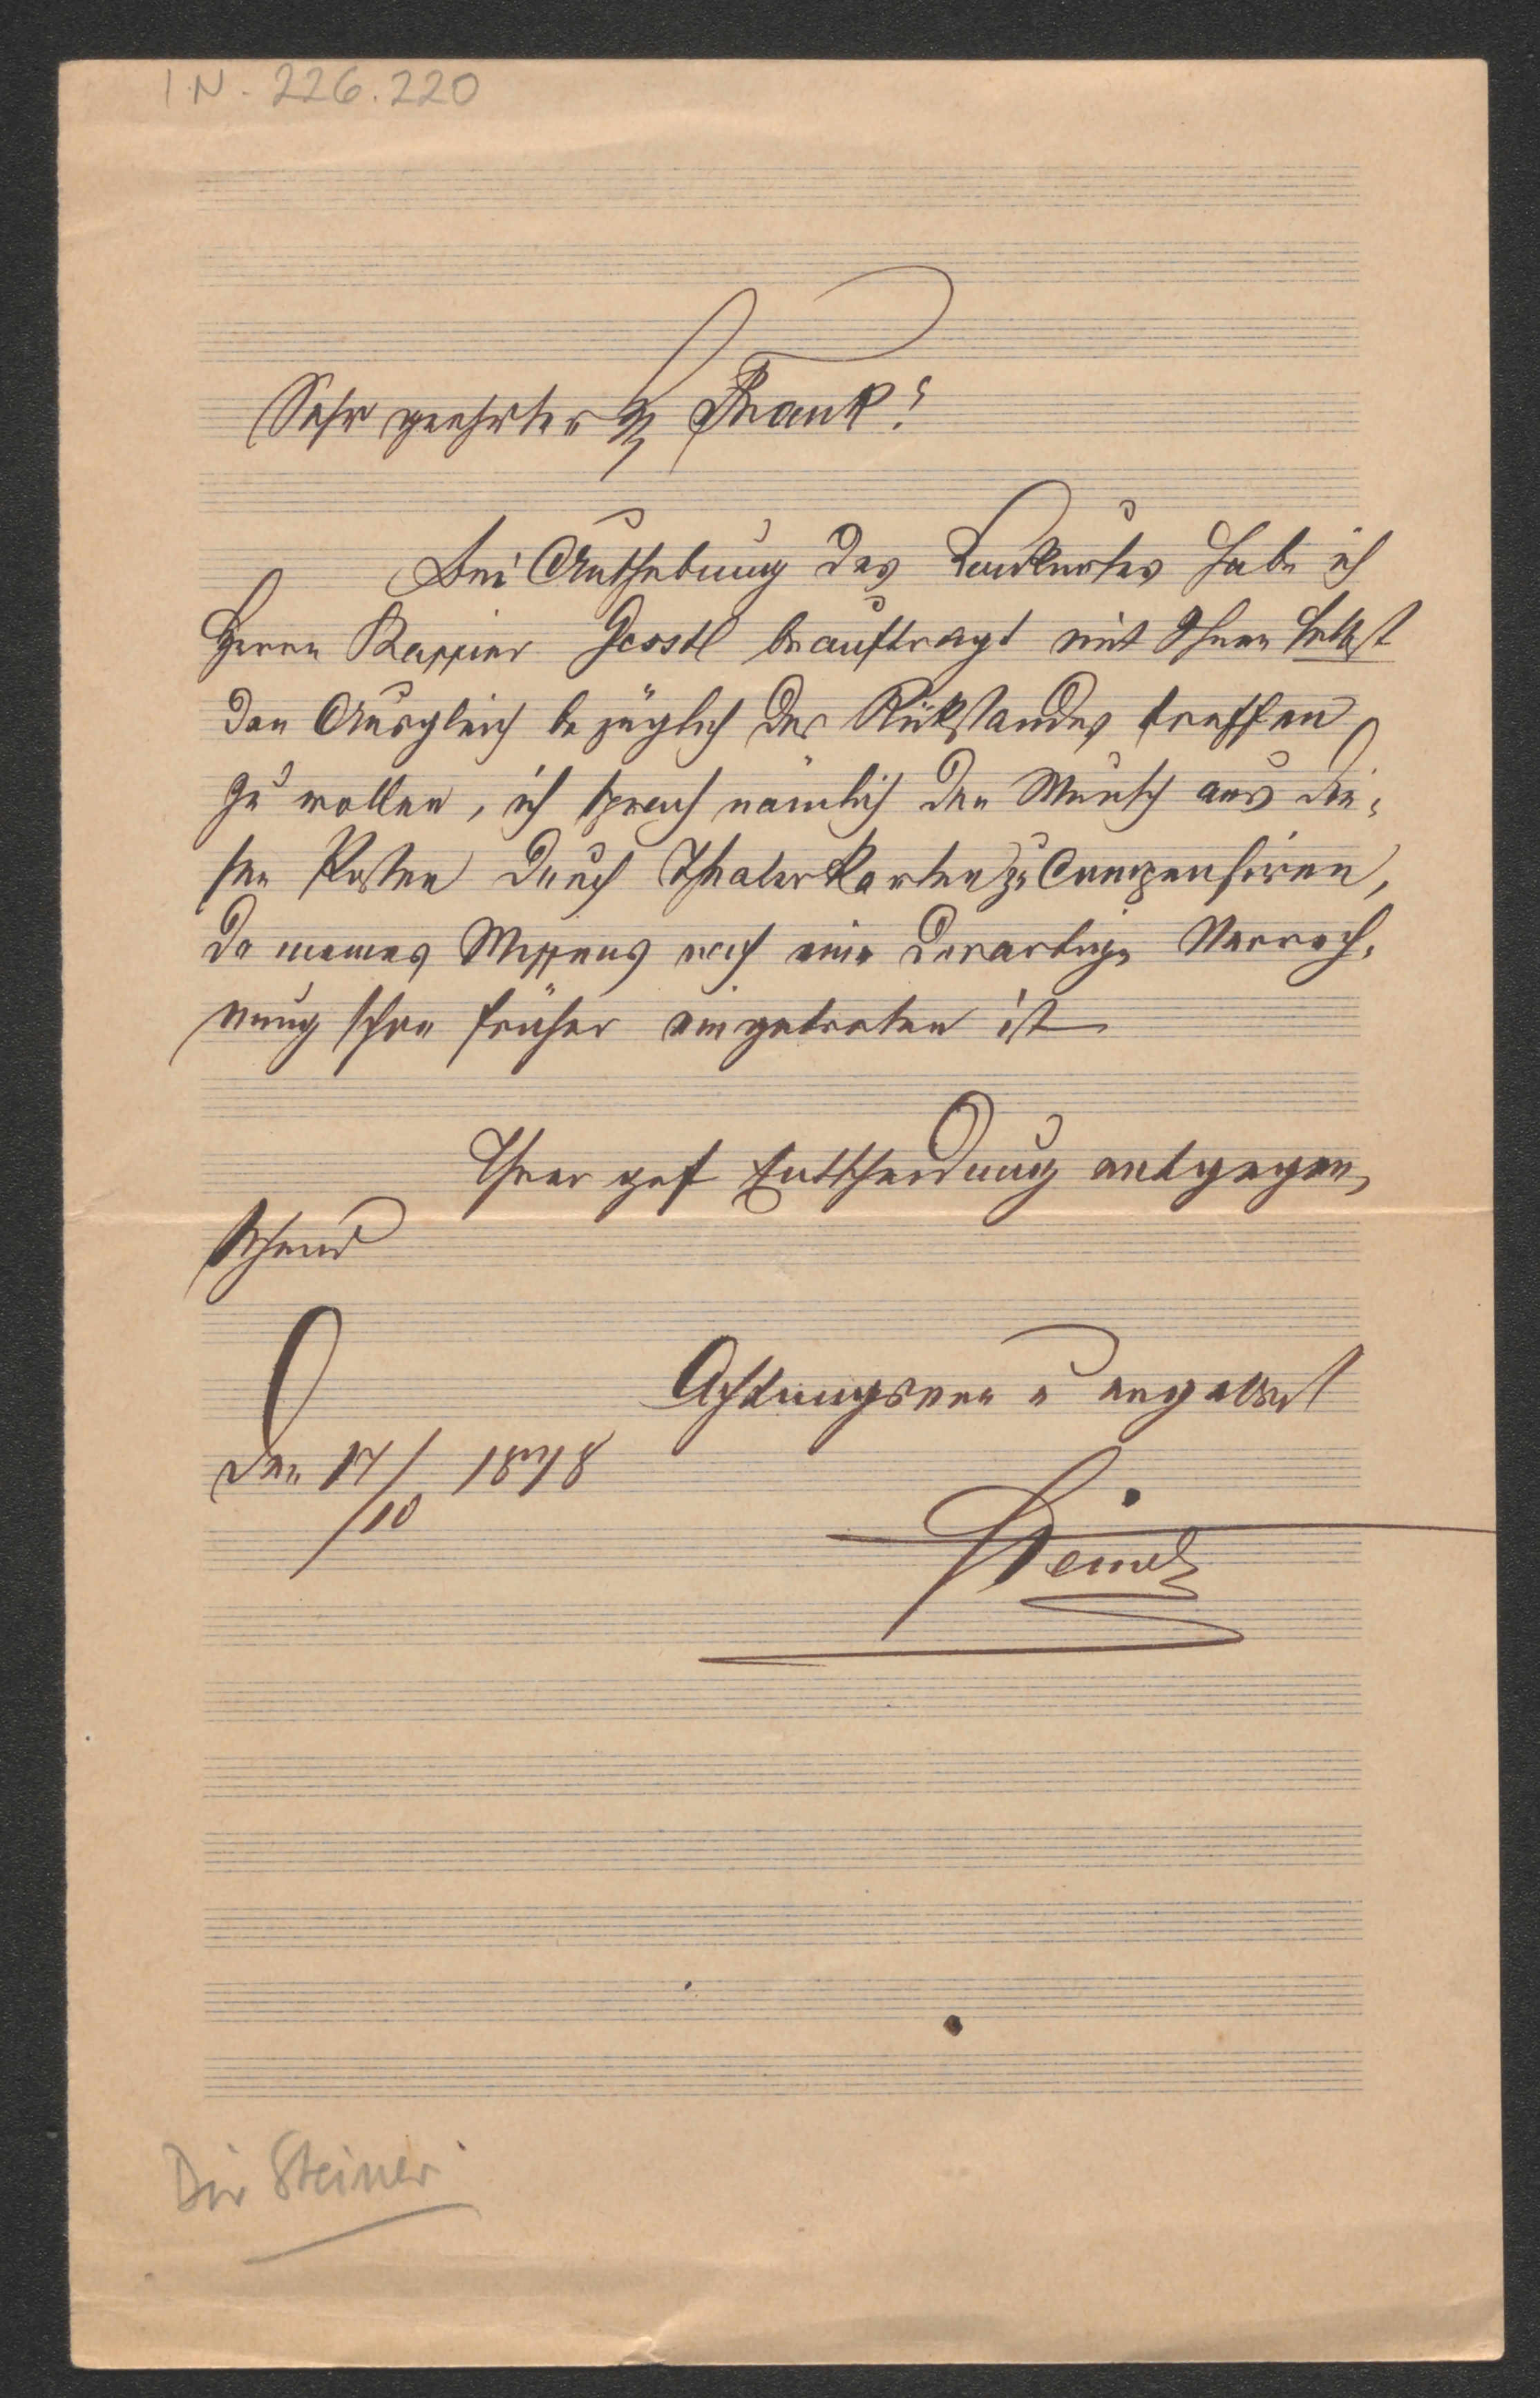 I.N. 226.220
Sehr geehrter H Frank!
Bei Enthebung des habe ich
Herrn Kassier Gerstl beauftragt mit Ihnen selbst
den Ausgleich bezüglich des Rükstandes treffen
zu wollen, ich sprach nämlich den Wunsch aus die-
sen Posten durch Theaterkarten zu Compensiren,
da meines Wissens nach eine derartige Verrech-
nung schon früher eingetreten ist
Ihrer gef Entscheidung entgegen
sehend
Achtungsvoll u ergebenst
den 17/10 1878
Steiner
Dir Steiner